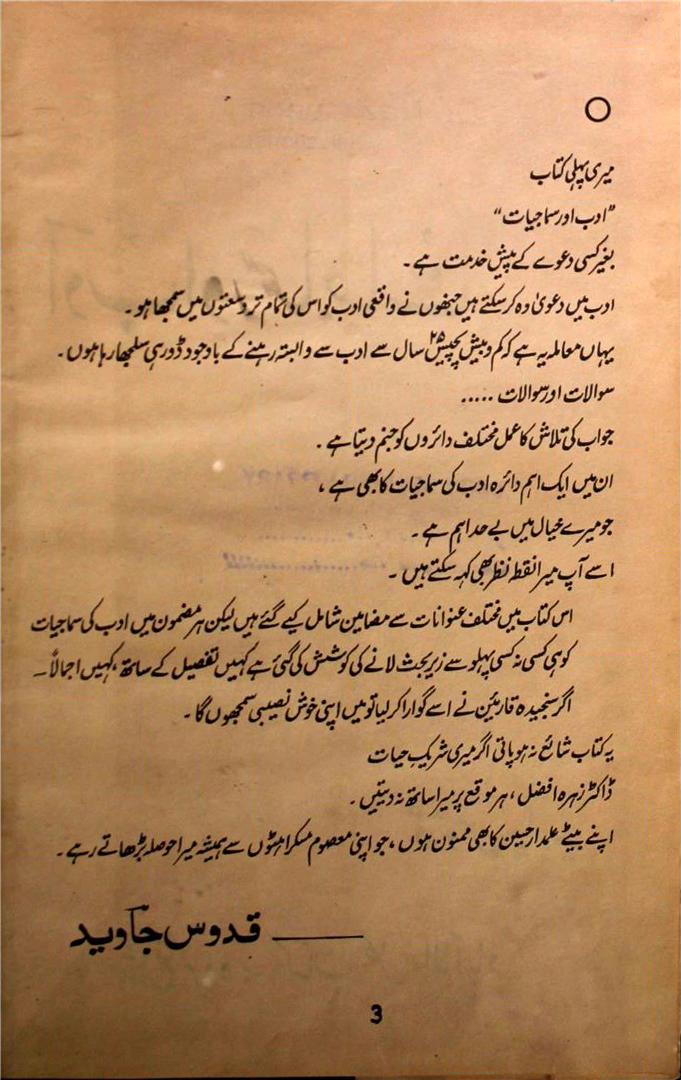 میری پہلی کتاب
"ادب اور سماجیات"
بغیر کسی دعوے کے پیش خدمت ہے۔
ادب میں دعویٰ وہ کر سکتے ہیں جنھوں نے واقعی ادب کو اس کی تمام تر وسعتوں میں سمجھا ہو۔
یہاں معاملہ یہ ہے کہ کم و بیش پچیس ۲۵ سال سے ادب سے وابستہ رہنے کے باوجود ڈور ہی سلجھا رہا ہوں۔
سوالات اور سوالات .....
جواب کی تلاش کا عمل مختلف دائروں کو جنم دیتا ہے۔
ان میں ایک اہم دائرہ ادب کی سماجیات کا بھی ہے،
جو میرے خیال میں بے حد اہم ہے۔
اسے آپ میرا نقطۂ نظر بھی کہہ سکتے ہیں۔
اس کتاب میں مختلف عنوانات سے مضامین شامل کیے گئے ہیں لیکن ہر مضمون میں ادب کی سماجیات
کو ہی کسی نہ کسی پہلو سے زیر بحث لانے کی کوشش کی گئی ہے کہیں تفصیل کے ساتھ، کہیں اجمالاً۔
اگر سنجیدہ قارئین نے اسے گوارا کر لیا تو میں اپنی خوش نصیبی سمجھوں گا۔
یہ کتاب شائع نہ ہو پاتی اگر میری شریکِ حیات
ڈاکٹر زہرہ افضل، ہر موقع پر میرا ساتھ نہ دیتیں۔
اپنے بیٹے علمدار حسین کا بھی ممنون ہوں، جو اپنی معصوم مسکراہٹوں سے ہمیشہ میرا حوصلہ بڑھاتے رہے۔
——— قدوس جاوید
3